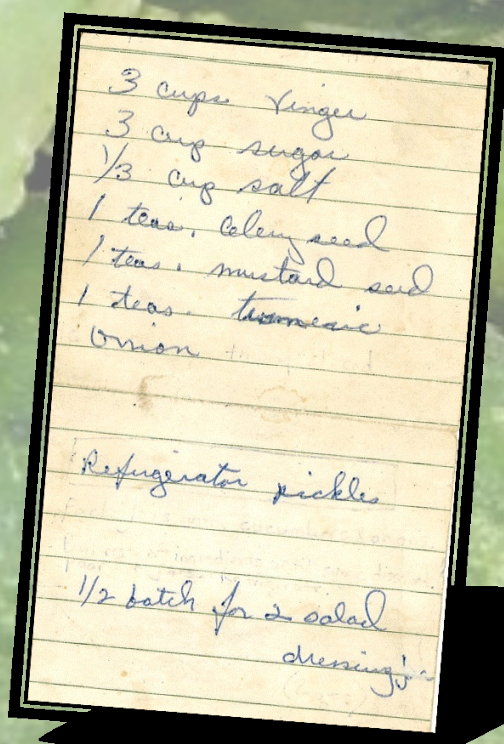 3 cups Vinger
3 cup sugar
1/3 cup salt
1 teas. Celery seed
1 teas. mustard seed
1 teas. tumeric
Onion
Refrigerator pickles
1/2 batch for 2 salad
dressing